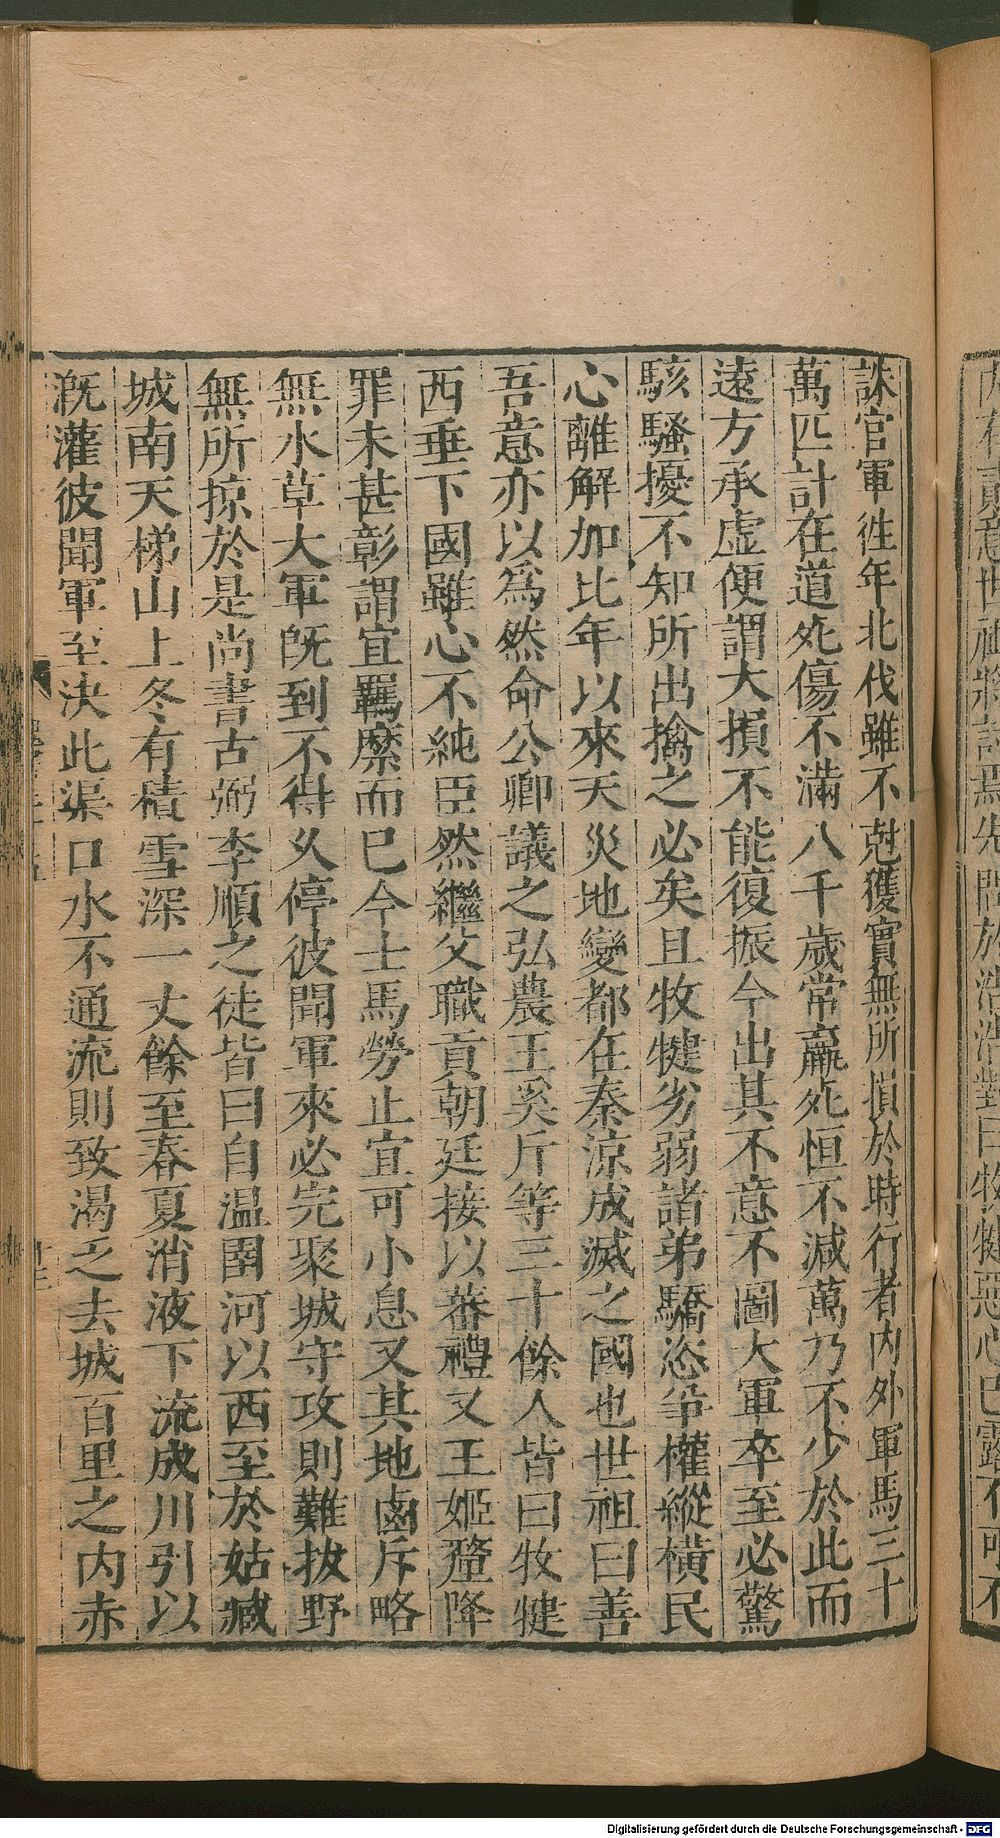 誅官軍徃年北伐雖不尅獲實無所損於時行者内外軍馬三十
萬匹計在道死傷不滿八千歲常羸死恒不减萬乃不少於此而
遠方承虛便謂大損不能復振今出其不意不圖大軍卒至必驚
駭騷擾不知所出擒之必矣且牧犍劣弱諸弟驕恣爭權縱横民
心離解加比年以來天災地變都在秦凉成滅之國也世祖曰善
吾意亦以爲然命公卿議之弘農王奚斤等三十餘人皆曰牧犍
西垂下國雖心不純臣然繼父職貢朝廷接以蕃禮又王姬釐降
罪未甚彰謂宜羈縻而巳今士馬勞止宜可小息又其地鹵斥略
無水草大軍旣到不得乆停彼聞軍來必完聚城守攻則難拔野
無所掠於是尚書古弼李順之徒皆曰自溫圉河以西至於姑臧
城南天梯山上冬有積雪深一丈餘至春夏消液下流成川引以
溉灌彼聞軍至决此渠口水不通流則致渴乏去城百里之内赤
Digitalisierung gefördert durch die Deutsche Forschungsgemeinschaft - DFG